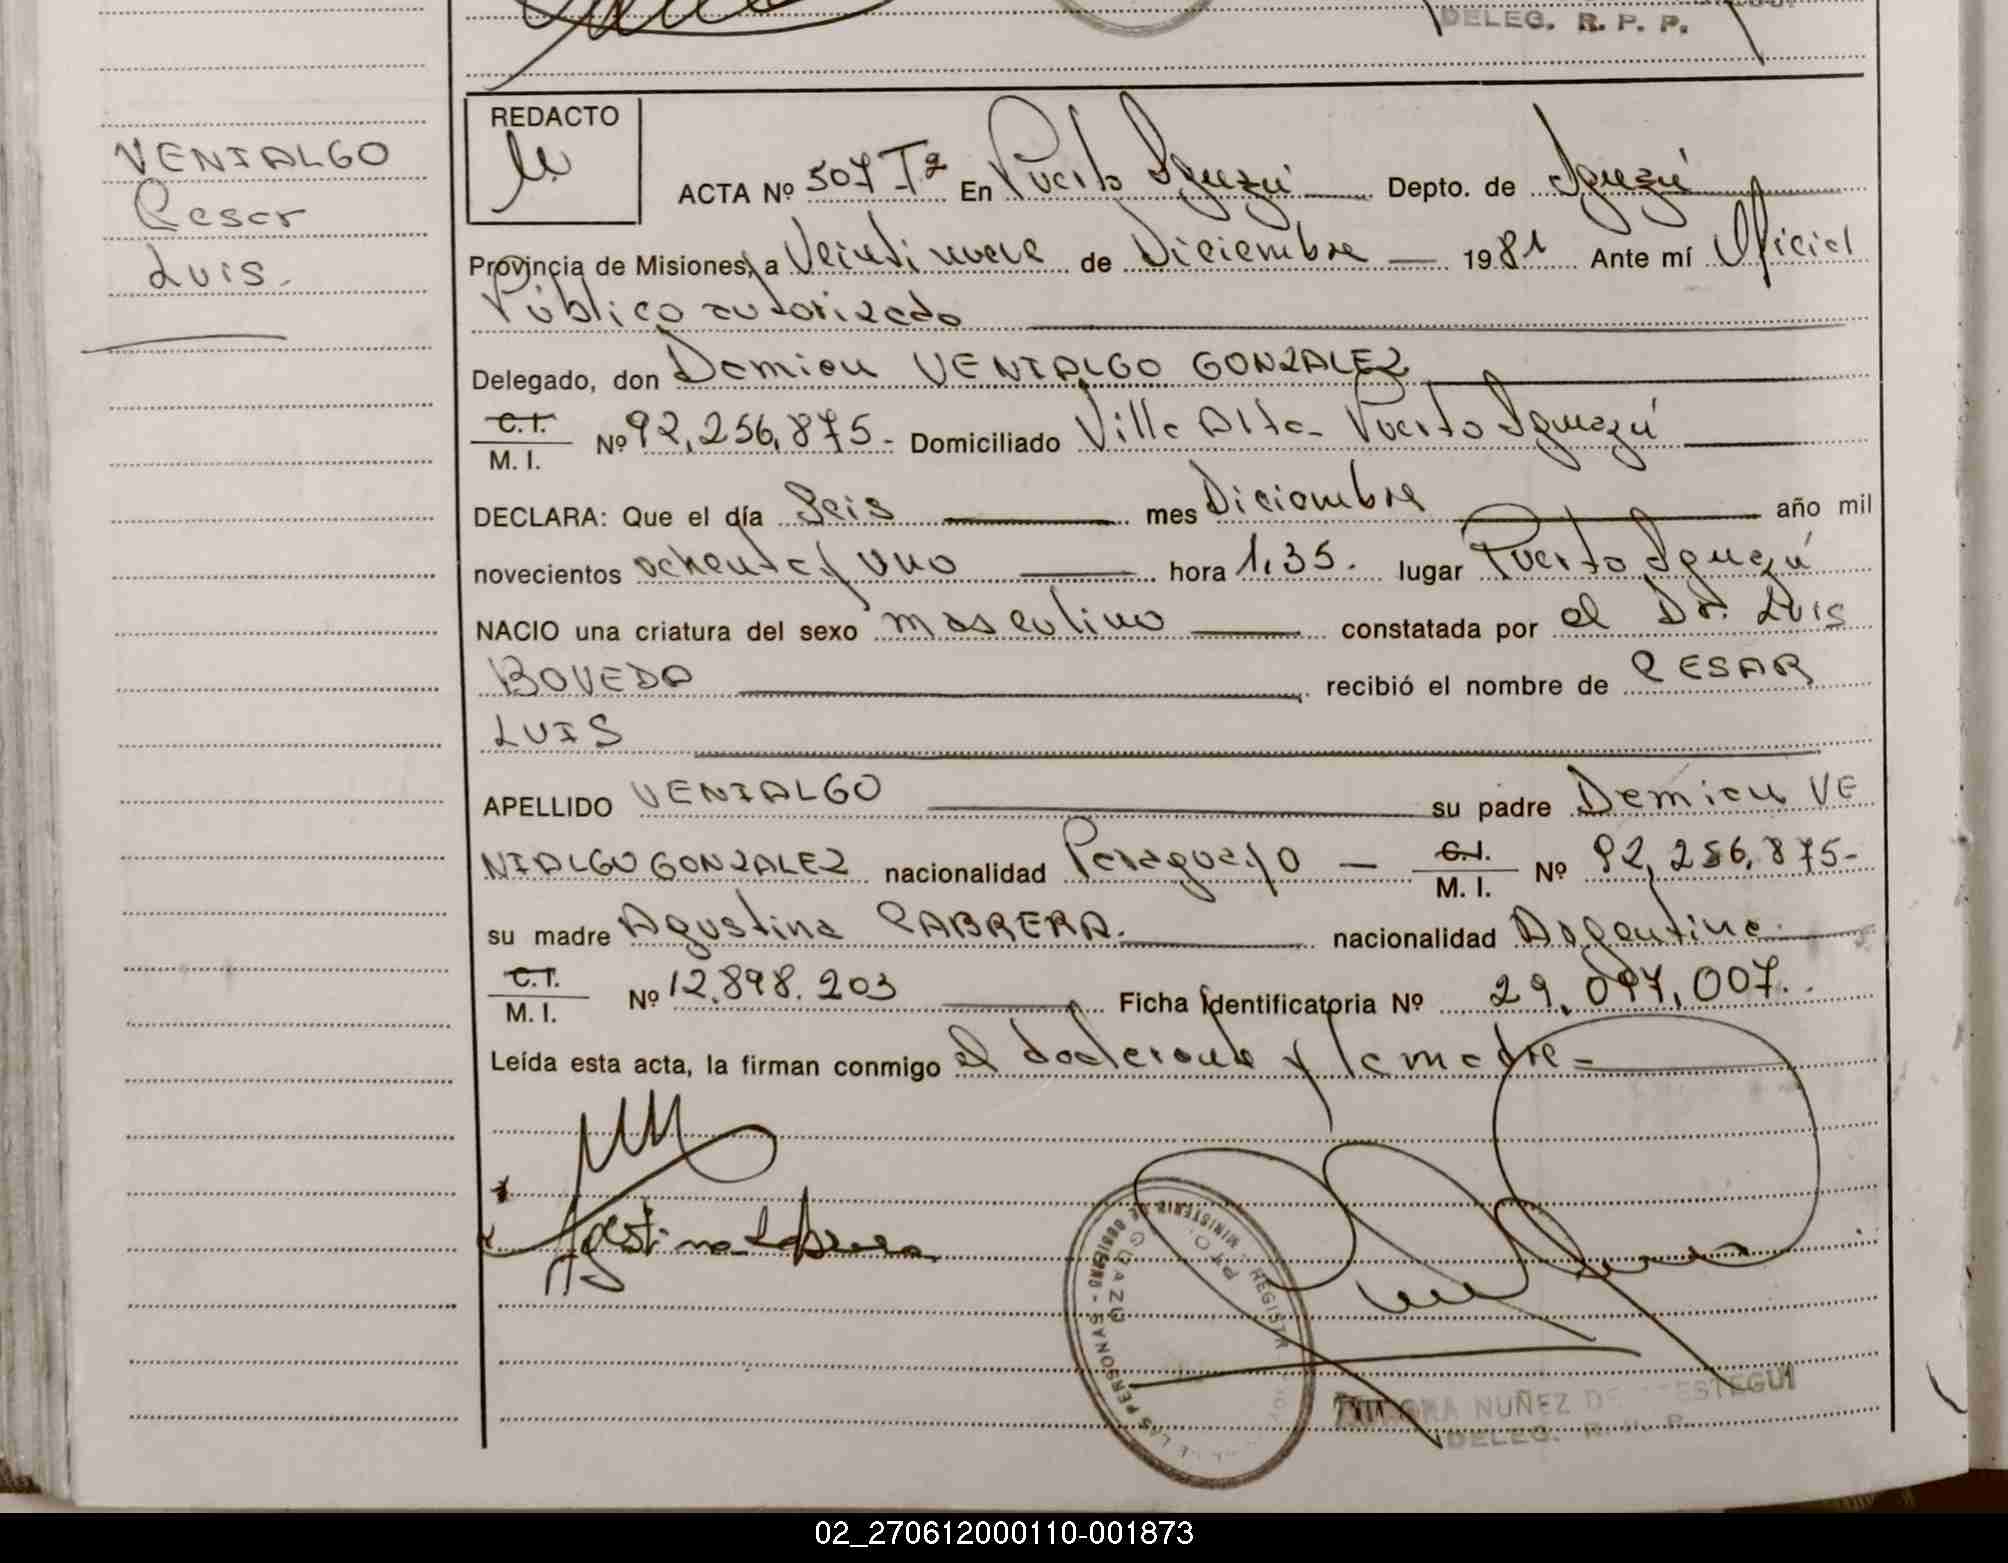 DELEG. R. P. P.
VENIALGO
Cesar
Luis.
REDACTO
ACTA Nº 507 Tº 2 En Puerto Iguazú Depto. de Iguazú
Provincia de Misiones, a Veintinueve de Diciembre 1981 Ante mí Oficial
Público autorizado
Delegado, don Damian VENIALGO GONZALEZ
C.I. / M. I. Nº 92,256,875- Domiciliado Villa Alta- Puerto Iguazú
DECLARA: Que el día Seis mes Diciembre año mil
novecientos ochenta y uno hora 1,35. lugar Puerto Iguazú
NACIO una criatura del sexo masculino constatada por el Dr. Luis
BOVEDA recibió el nombre de CESAR
LUIS
APELLIDO VENIALGO su padre Damian VE
NIALGO GONZALEZ nacionalidad Paraguayo — C.I. / M. I. Nº 92,256,875-
su madre Agustina CABRERA. nacionalidad Argentina
C.I. / M. I. Nº 12.898.203 Ficha Identificatoria Nº 29,097,007.
Leída esta acta, la firman conmigo el declarante y la madre =
Agustina Cabrera
NUÑEZ DE
DELEG.
02_270612000110-001873